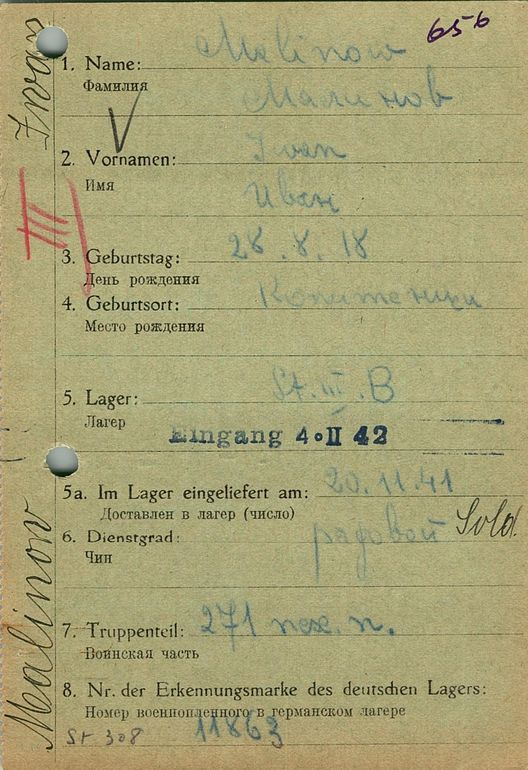 656
Malinow
1. Name:
Фамилия
Малинов
2. Vornamen: Iwan
Имя
Иван
3. Geburtstag: 28.8.18
День рождения
4. Geburtsort:
Место рождения
5. Lager: St. III. B
Лагер
Eingang 4. II 42
5a. Im Lager eingeliefert am: 20.11.41
Доставлен в лагер (число)
6. Dienstgrad: рядовой Sold.
Чин
7. Truppenteil: 271 пех. п.
Воинская часть
8. Nr. der Erkennungsmarke des deutschen Lagers:
Номер военнопленного в германском лагере
St 308 11863
Malinow Iwan
III